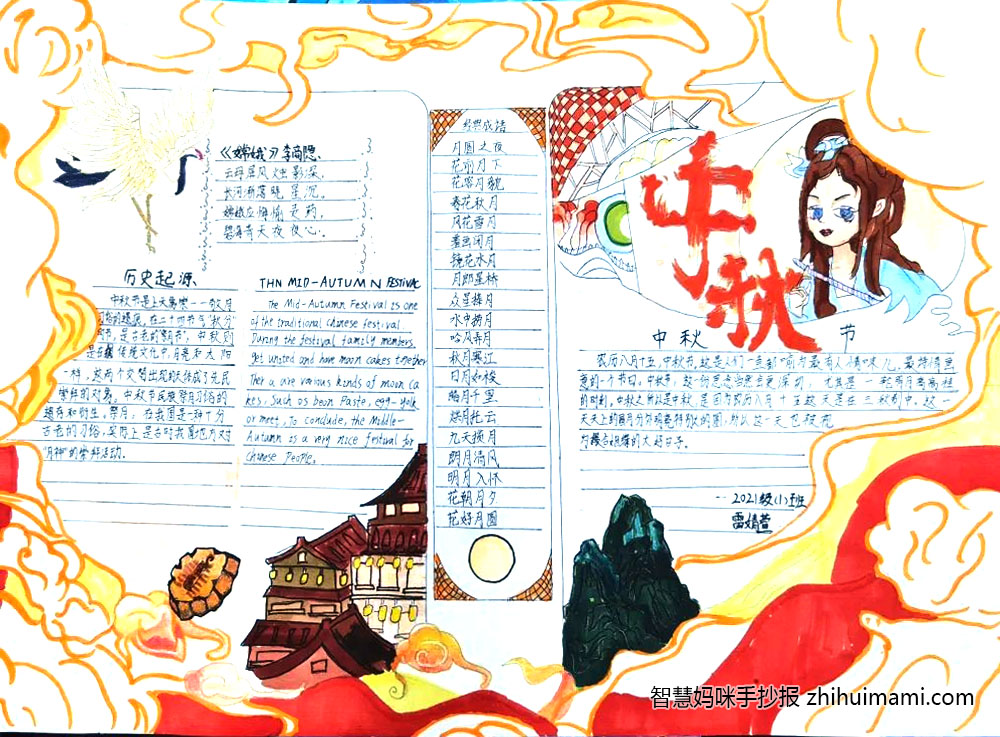 《嫦娥》李商隐
云母屏风烛影深，
长河渐落晓星沉。
嫦娥应悔偷灵药，
碧海青天夜夜心。
历史起源
中秋节是上天禽赏一一敬月
习俗的遗痕。在二十四节气"秋分
时节，是古老的"祭月节"。中秋则
传统文化中，月是和太阳
一样，这两个交替出现的天体成了先民
崇拜的对象。中秋节民族祭月习俗的
遗存和衍生。祭月，在我国是一种十分
古老的习俗，实际上是古时我国地方对
"月神"的崇拜活动。
THN MID-AUTUMN FESTIVAL
The Mid-Autumn Festival is one
of the traditional Chinese festival.
During the festival family members,
get united and have moon cakes together
Ther u are various kinds of moon ca
kes. Such os beon Paste, egg-yolk
or meet, To conclude, the Middle-
Autumn is a very nice festival for
Chinese People.
经典成语
月圆之夜
花前月下
花容月貌
春花秋月
风花雪月
羞画闭月
镜花水月
月郎星稀
众星捧月
水中捞月
吟风弄月
秋月寒江
日月如梭
皓月千里
烘月托云
九天揽月
朗月清风
明月入怀
花朝月夕
花好月圆
中秋
中秋 节
农历八月十五，中秋节，这是人们一直都 最有人情味儿、最诗情画
意的一个节日。中秋节，这份思念当然会更深切，尤其是一轮明月高高挂
的时刻。中秋之所以是中秋，是因为农历八月十五这天是在三秋制中。这一
天天上的圆月分外明亮特别大的圆，所以这一天也被视
为撮合姻缘的大好日子。
--2021级(1)班
雷婧萱
智慧妈咪手抄报 zhihuimami.com